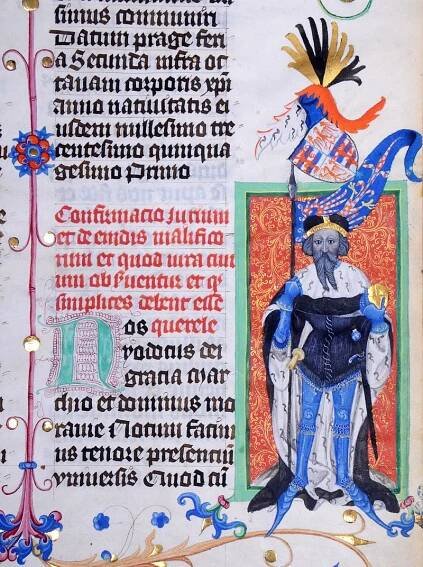 simus communiri
Datum prage feri
a Secunda infra oc
tavam corporis xpi
anno nativitatis ei
usdem millesimo tre
centesimo quinqua
gesimo Primo
Confirmacio Jurium
et de emdis malifico
rum et quod iura civi
um et
simplices debent esse
querele
Nos
Jodocus dei
gracia mar
chio et dominus mo
ravie Notum facim
us tenore presenciu
universis Quod cu